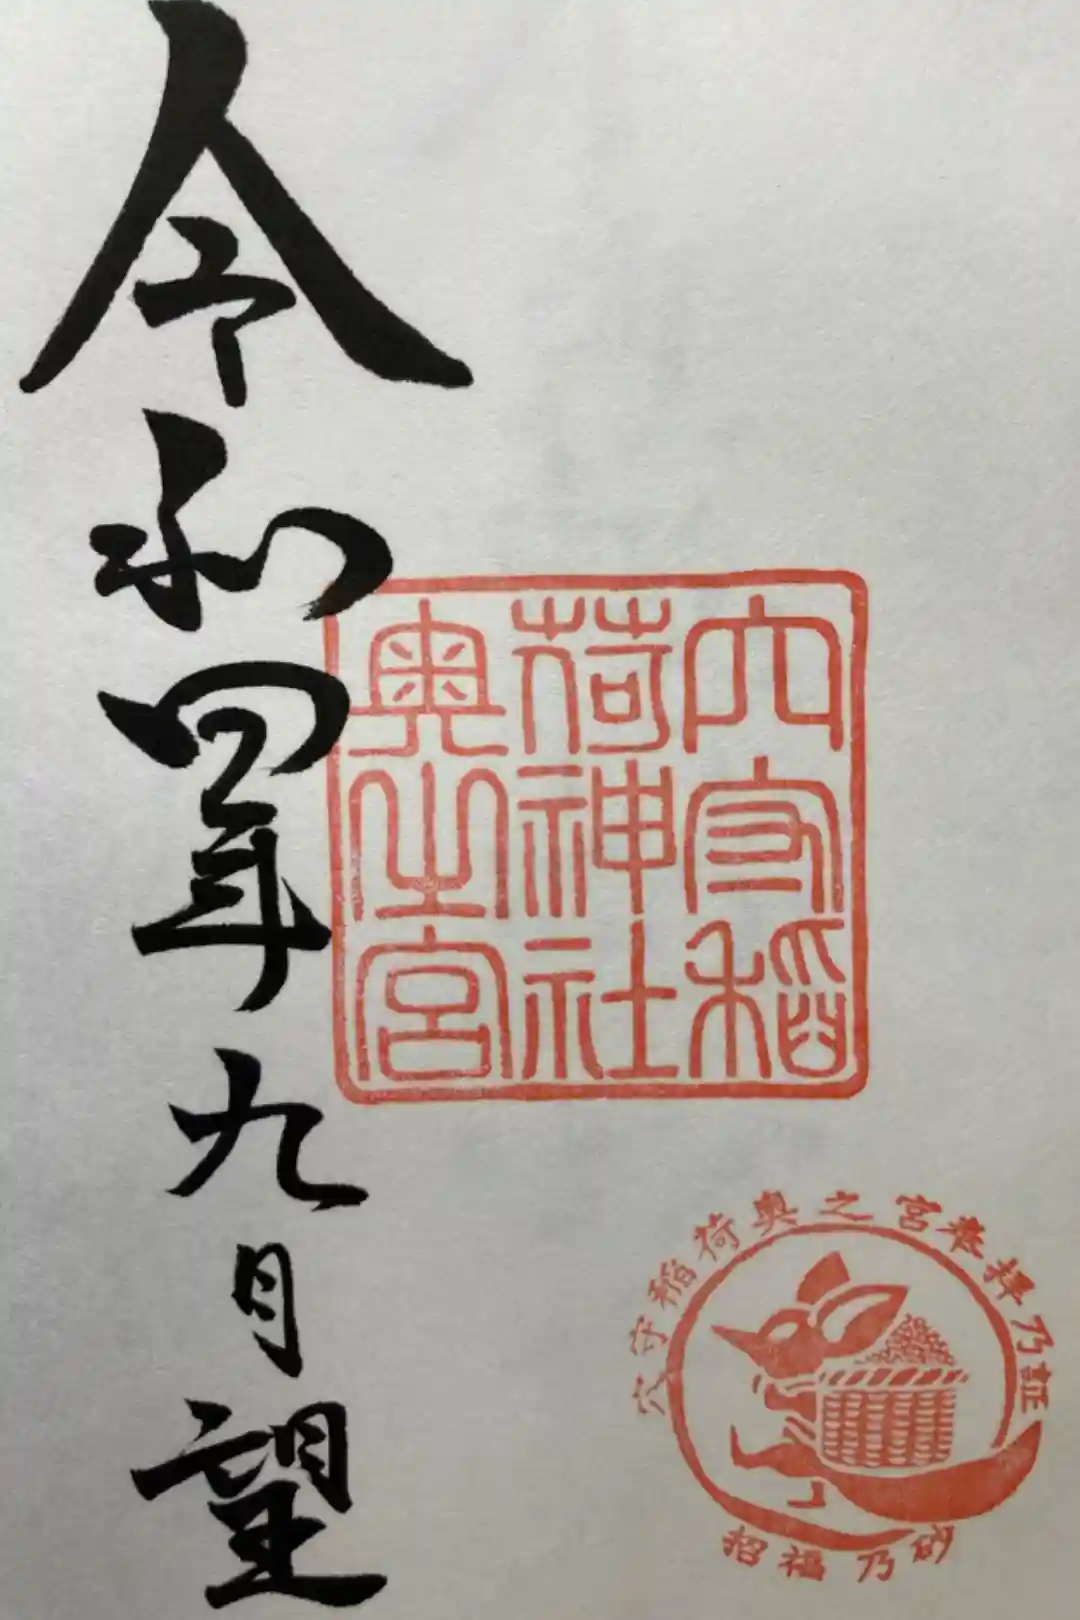 令和四年九月望
穴守稲
荷神社
奥之宮
穴守稲荷奥之宮参拝乃証
招福乃砂